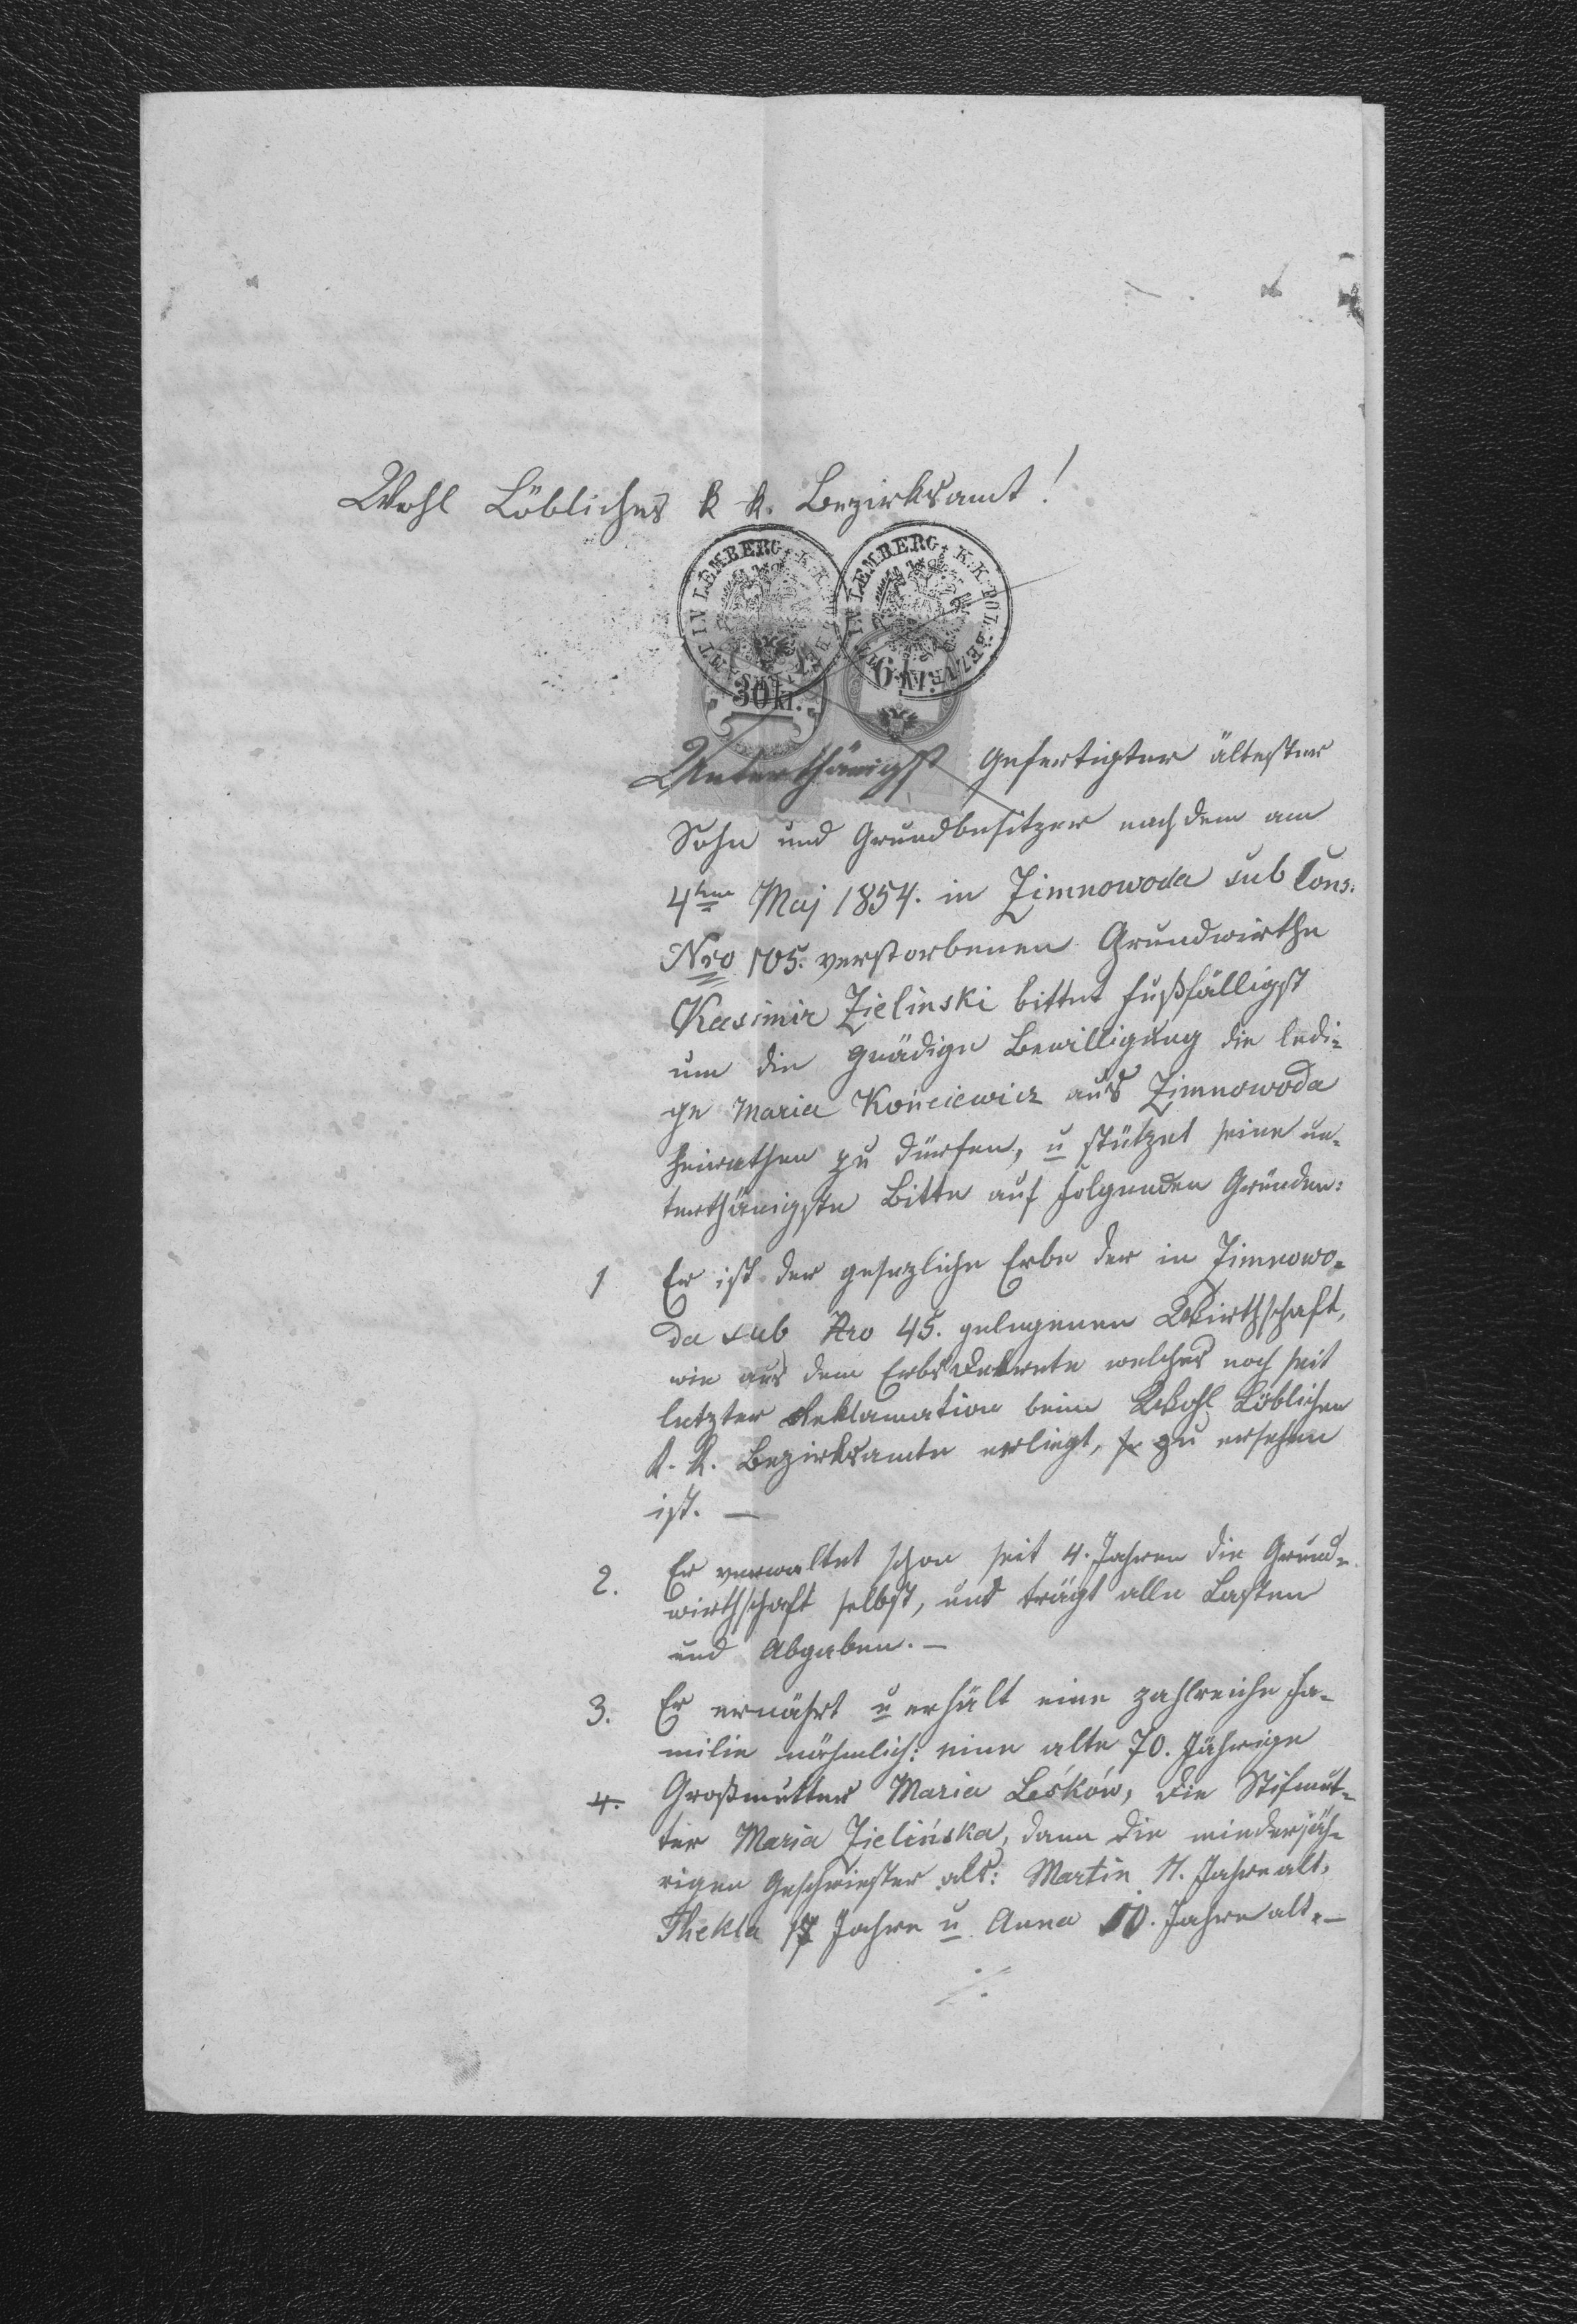 Wohl Löbliches k k. Bezirksamt!
K. K. POL. BEZIRKSAMT IN LEMBERG
K. K. POL. BEZIRKSAMT IN LEMBERG
30 kr.
6 kr.
Unterthänigst Gefertigter ältester
Sohn und Grundbesitzer nach dem am
4ten Maj 1854. in Zimnowoda sub Cons.
Nro 105. verstorbenen Grundwirthe
Kasimir Zielinski bittet fußfälligst
um die gnädige Bewilligung die ledi-
ge Maria Końciewicz aus Zimnowoda
heirathen zu dürfen, u stützet seine un-
terthänigste Bitte auf folgenden Gründen:
1 Er ist der gesezliche Erbe der in Zimnowo-
da sub Nro 45. gelegenen Wirthschaft,
wie aus dem Erbsdekrete welches noch seit
letzter Reklamation beim Wohl Löblichen
k. k. Bezirksamte erliegt, zu ersehen
ist. —
2. Er verwaltet schon seit 4. Jahren die Grund-
wirthschaft selbst, und trägt alle Lasten
und Abgaben. —
3. Er ernährt u erhält eine zahlreiche Fa-
milie nähmlich: eine alte 70. Jährige
4. Großmutter Maria Leśków, die Stifmut-
ter Maria Zielińska, dann die minderjäh-
rigen Geschwister als: Martin 11. Jahre alt,
Thekla Jahre u Anna 10. Jahre alt. —
./.